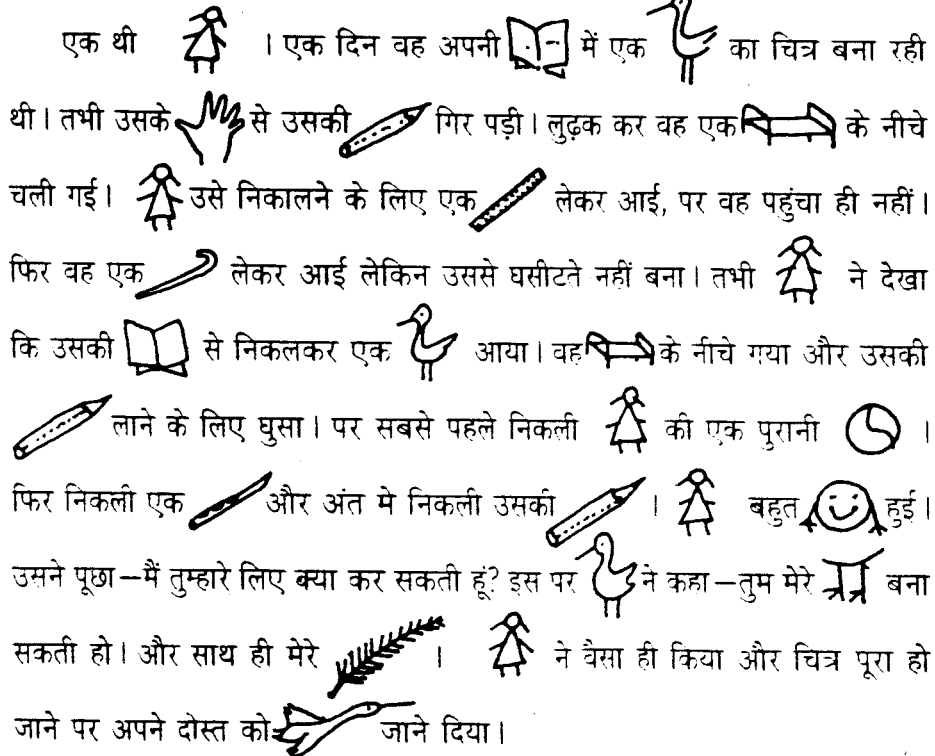 एक थी । एक दिन वह अपनी में एक का चित्र बना रही
थी। तभी उसके से उसकी गिर पड़ी। लुढ़क कर वह एक के नीचे
चली गई। उसे निकालने के लिए एक लेकर आई, पर वह पहुंचा ही नहीं।
फिर वह एक लेकर आई लेकिन उससे घसीटते नहीं बना। तभी ने देखा
कि उसकी से निकलकर एक आया। वह के नीचे गया और उसकी
लाने के लिए घुसा। पर सबसे पहले निकली की एक पुरानी ।
फिर निकली एक और अंत मे निकली उसकी । बहुत हुई।
उसने पूछा–मैं तुम्हारे लिए क्या कर सकती हूं? इस पर ने कहा–तुम मेरे बना
सकती हो। और साथ ही मेरे । ने वैसा ही किया और चित्र पूरा हो
जाने पर अपने दोस्त को जाने दिया।